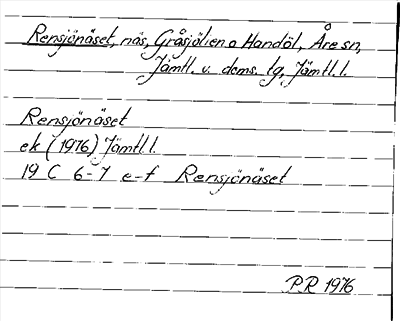 Rensjönäset, näs, Gråsjölien o Handöl, Åre sn,
Jämtl. v. doms. tg, Jämtl. l.
Rensjönäset
ek (1976) Jämtl. l.
19 C 6-7 e-f Rensjönäset
PR 1976